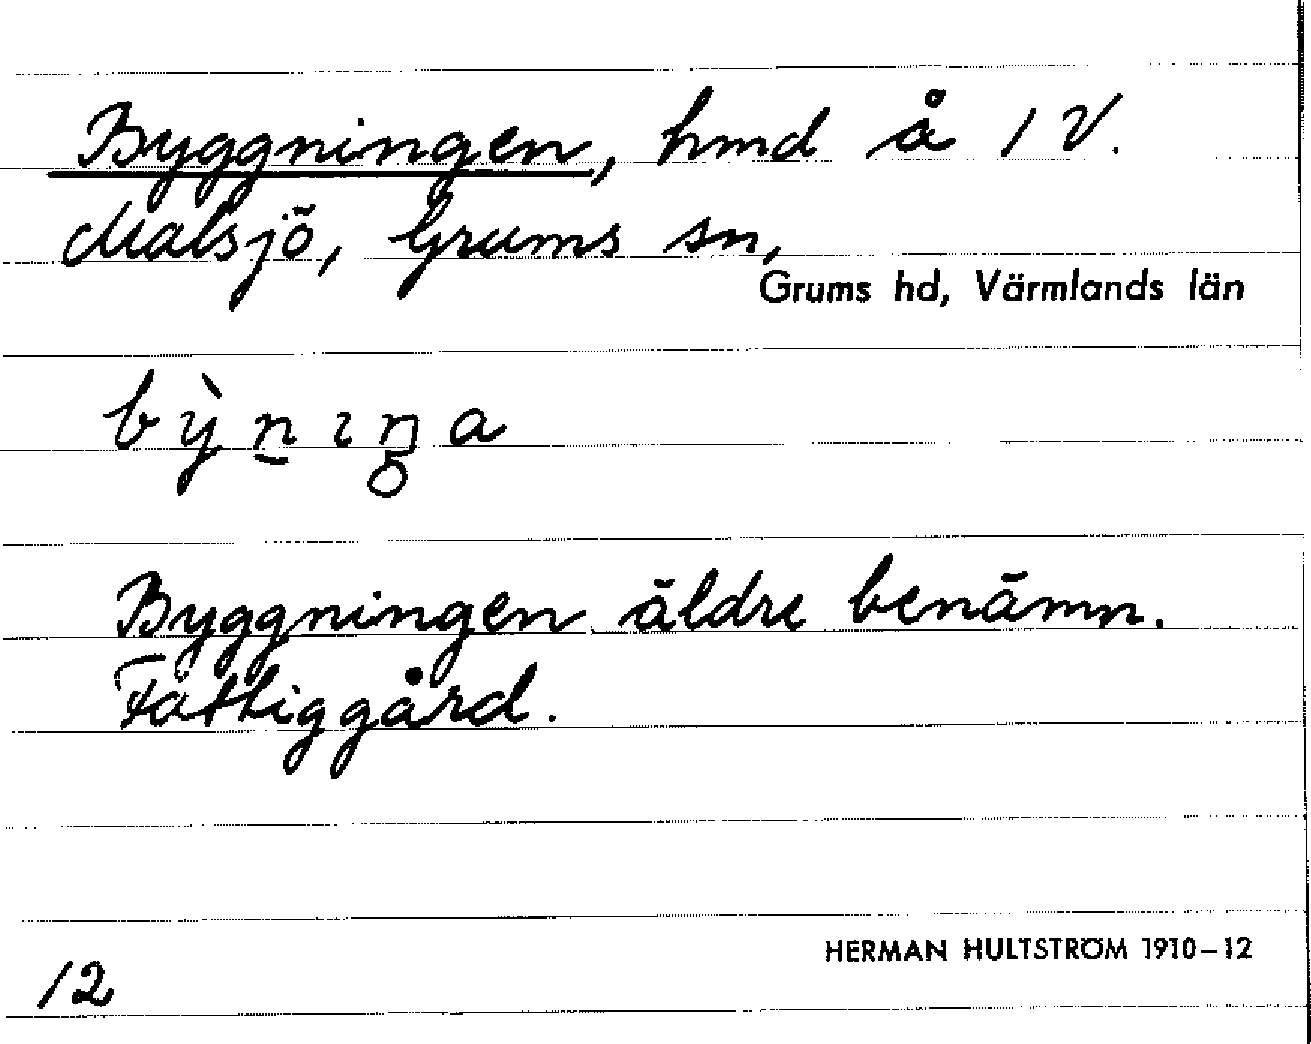 Byggningen, hmd å 1 V.
Malsjö, Grums sn,
Grums hd, Värmlands län
bỳn̠ıŋa
Byggningen äldre benämn.
Fattiggård.
HERMAN HULTSTRÖM 1910–12
12